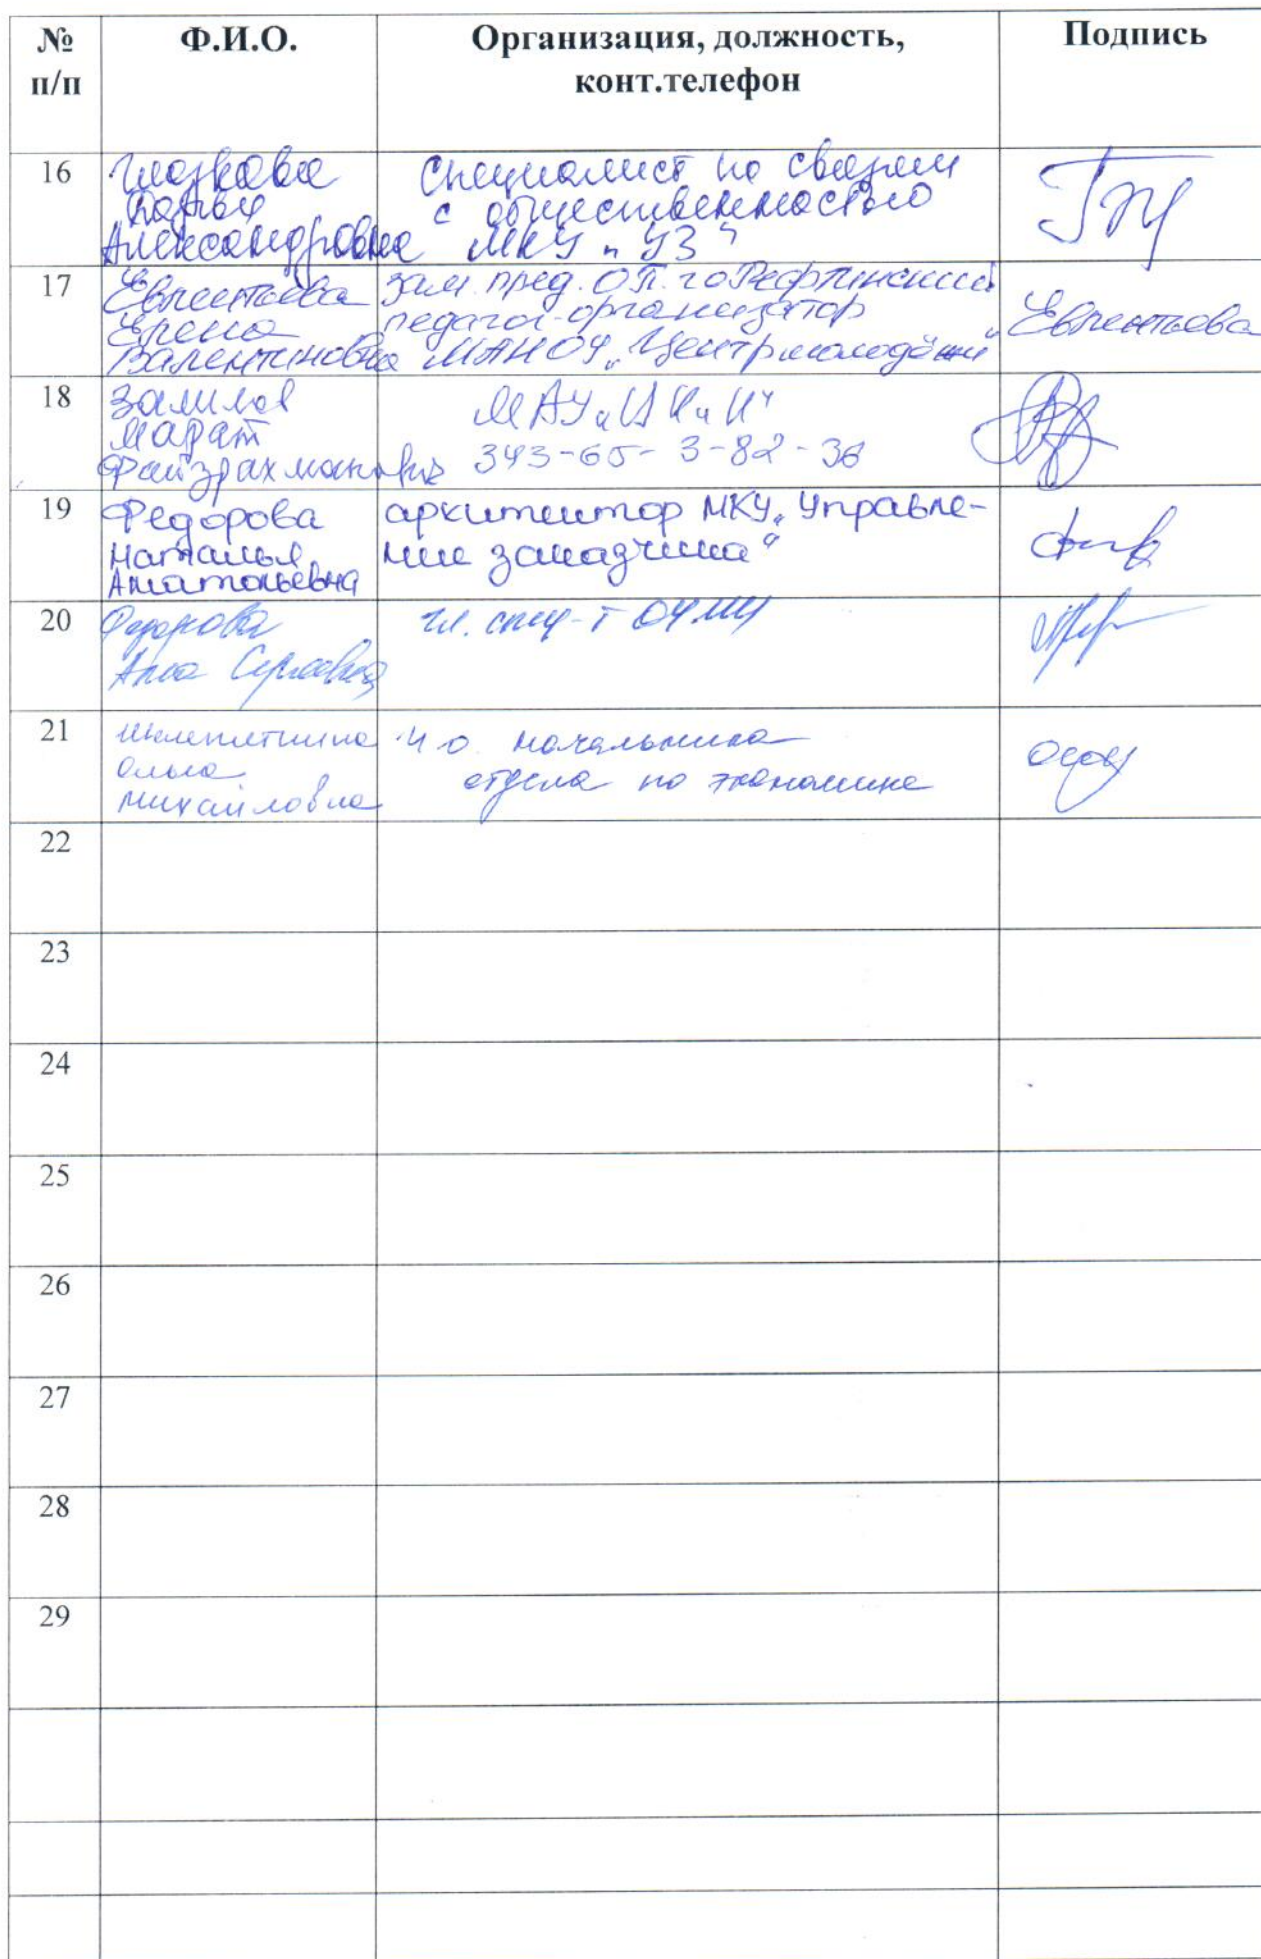 № п/п
Ф.И.О.
Организация, должность, конт.телефон
Подпись
16
Глазкова
Дарья
Александровна
Специалист по связям
с общественностью
МКУ „УЗ"
17
Евлентьева
Елена
Валентиновна
зам. пред. ОП. го Рефтинский
педагог-организатор
МАНОУ „Центр молодёжи"
Евлентьева
18
Залилов
Марат
Файзрахманович
МАУ „ЦКиИ"
343-65-3-82-36
19
Федорова
Наталья
Анатольевна
архитектор МКУ „Управле-
ние заказчика"
20
Федорова
Анна Сергеевна
гл. спец-т ОУМИ
21
Ольга
Михайловна
И о. начальника
отдела по экономике
22
23
24
25
26
27
28
29